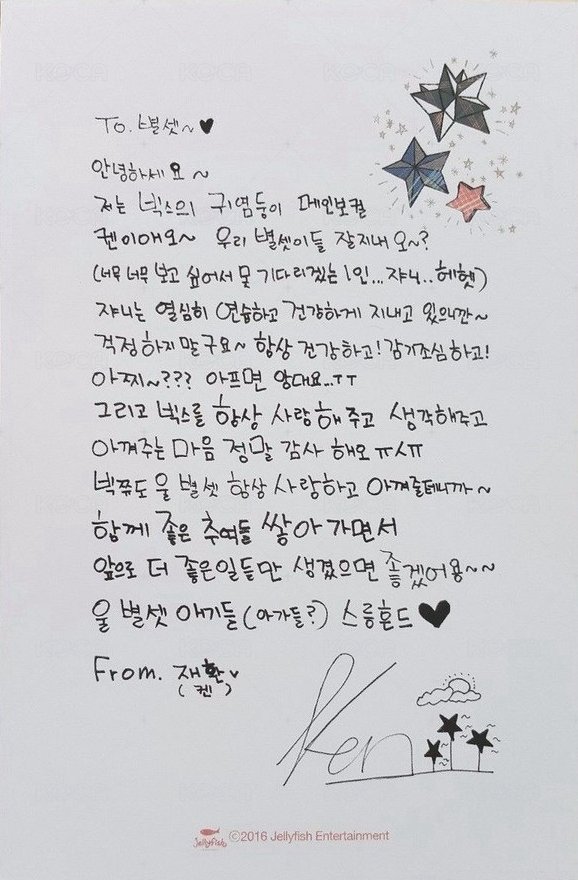 To. 별셋~♥
안녕하세요~
저는 빅스의 귀염둥이 메인보컬
켄이애오~ 우리 별셋이들 잘지내오~?
(너무 너무 보고 싶어서 못 기다리겠는 1인... 쟈니.. 헤헷)
쟈니는 열심히 연습하고 건강하게 지내고 있으니깐~
걱정하지말구요~ 항상 건강하고! 감기조심하고!
아찌~??? 아프면 앙대요..ㅜㅜ
그리고 빅스를 항상 사랑해주고 생각해주고
아껴주는 마음 정말 감사해오 ㅠㅅㅠ
빅쮸도 울 별셋 항상 사랑하고 아껴줄테니까~
함께 좋은 추여들 쌓아가면서
앞으로 더 좋은일들만 생겼으면 좋겠어용~~
울 별셋 애기들(아가들?) 스릉흔드♥
From. 재환♥
(켄)
Ken
Jellyfish ©2016 Jellyfish Entertainment